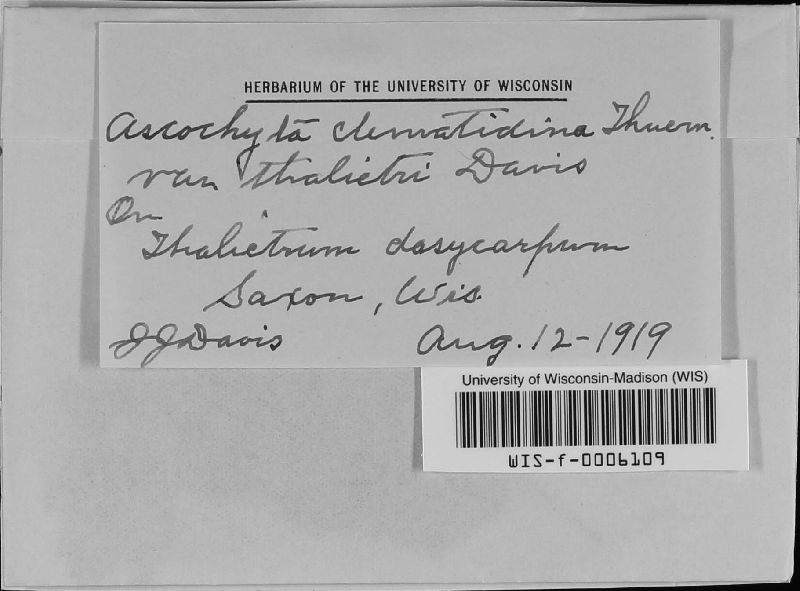 HERBARIUM OF THE UNIVERSITY OF WISCONSIN
Ascochyta clematidina Thuem.
var thalictri Davis
On
Thalictrum dasycarpum
Saxon, Wis.
JJDavis Aug. 12-1919
University of Wisconsin-Madison (WIS)
WIS-f-0006109